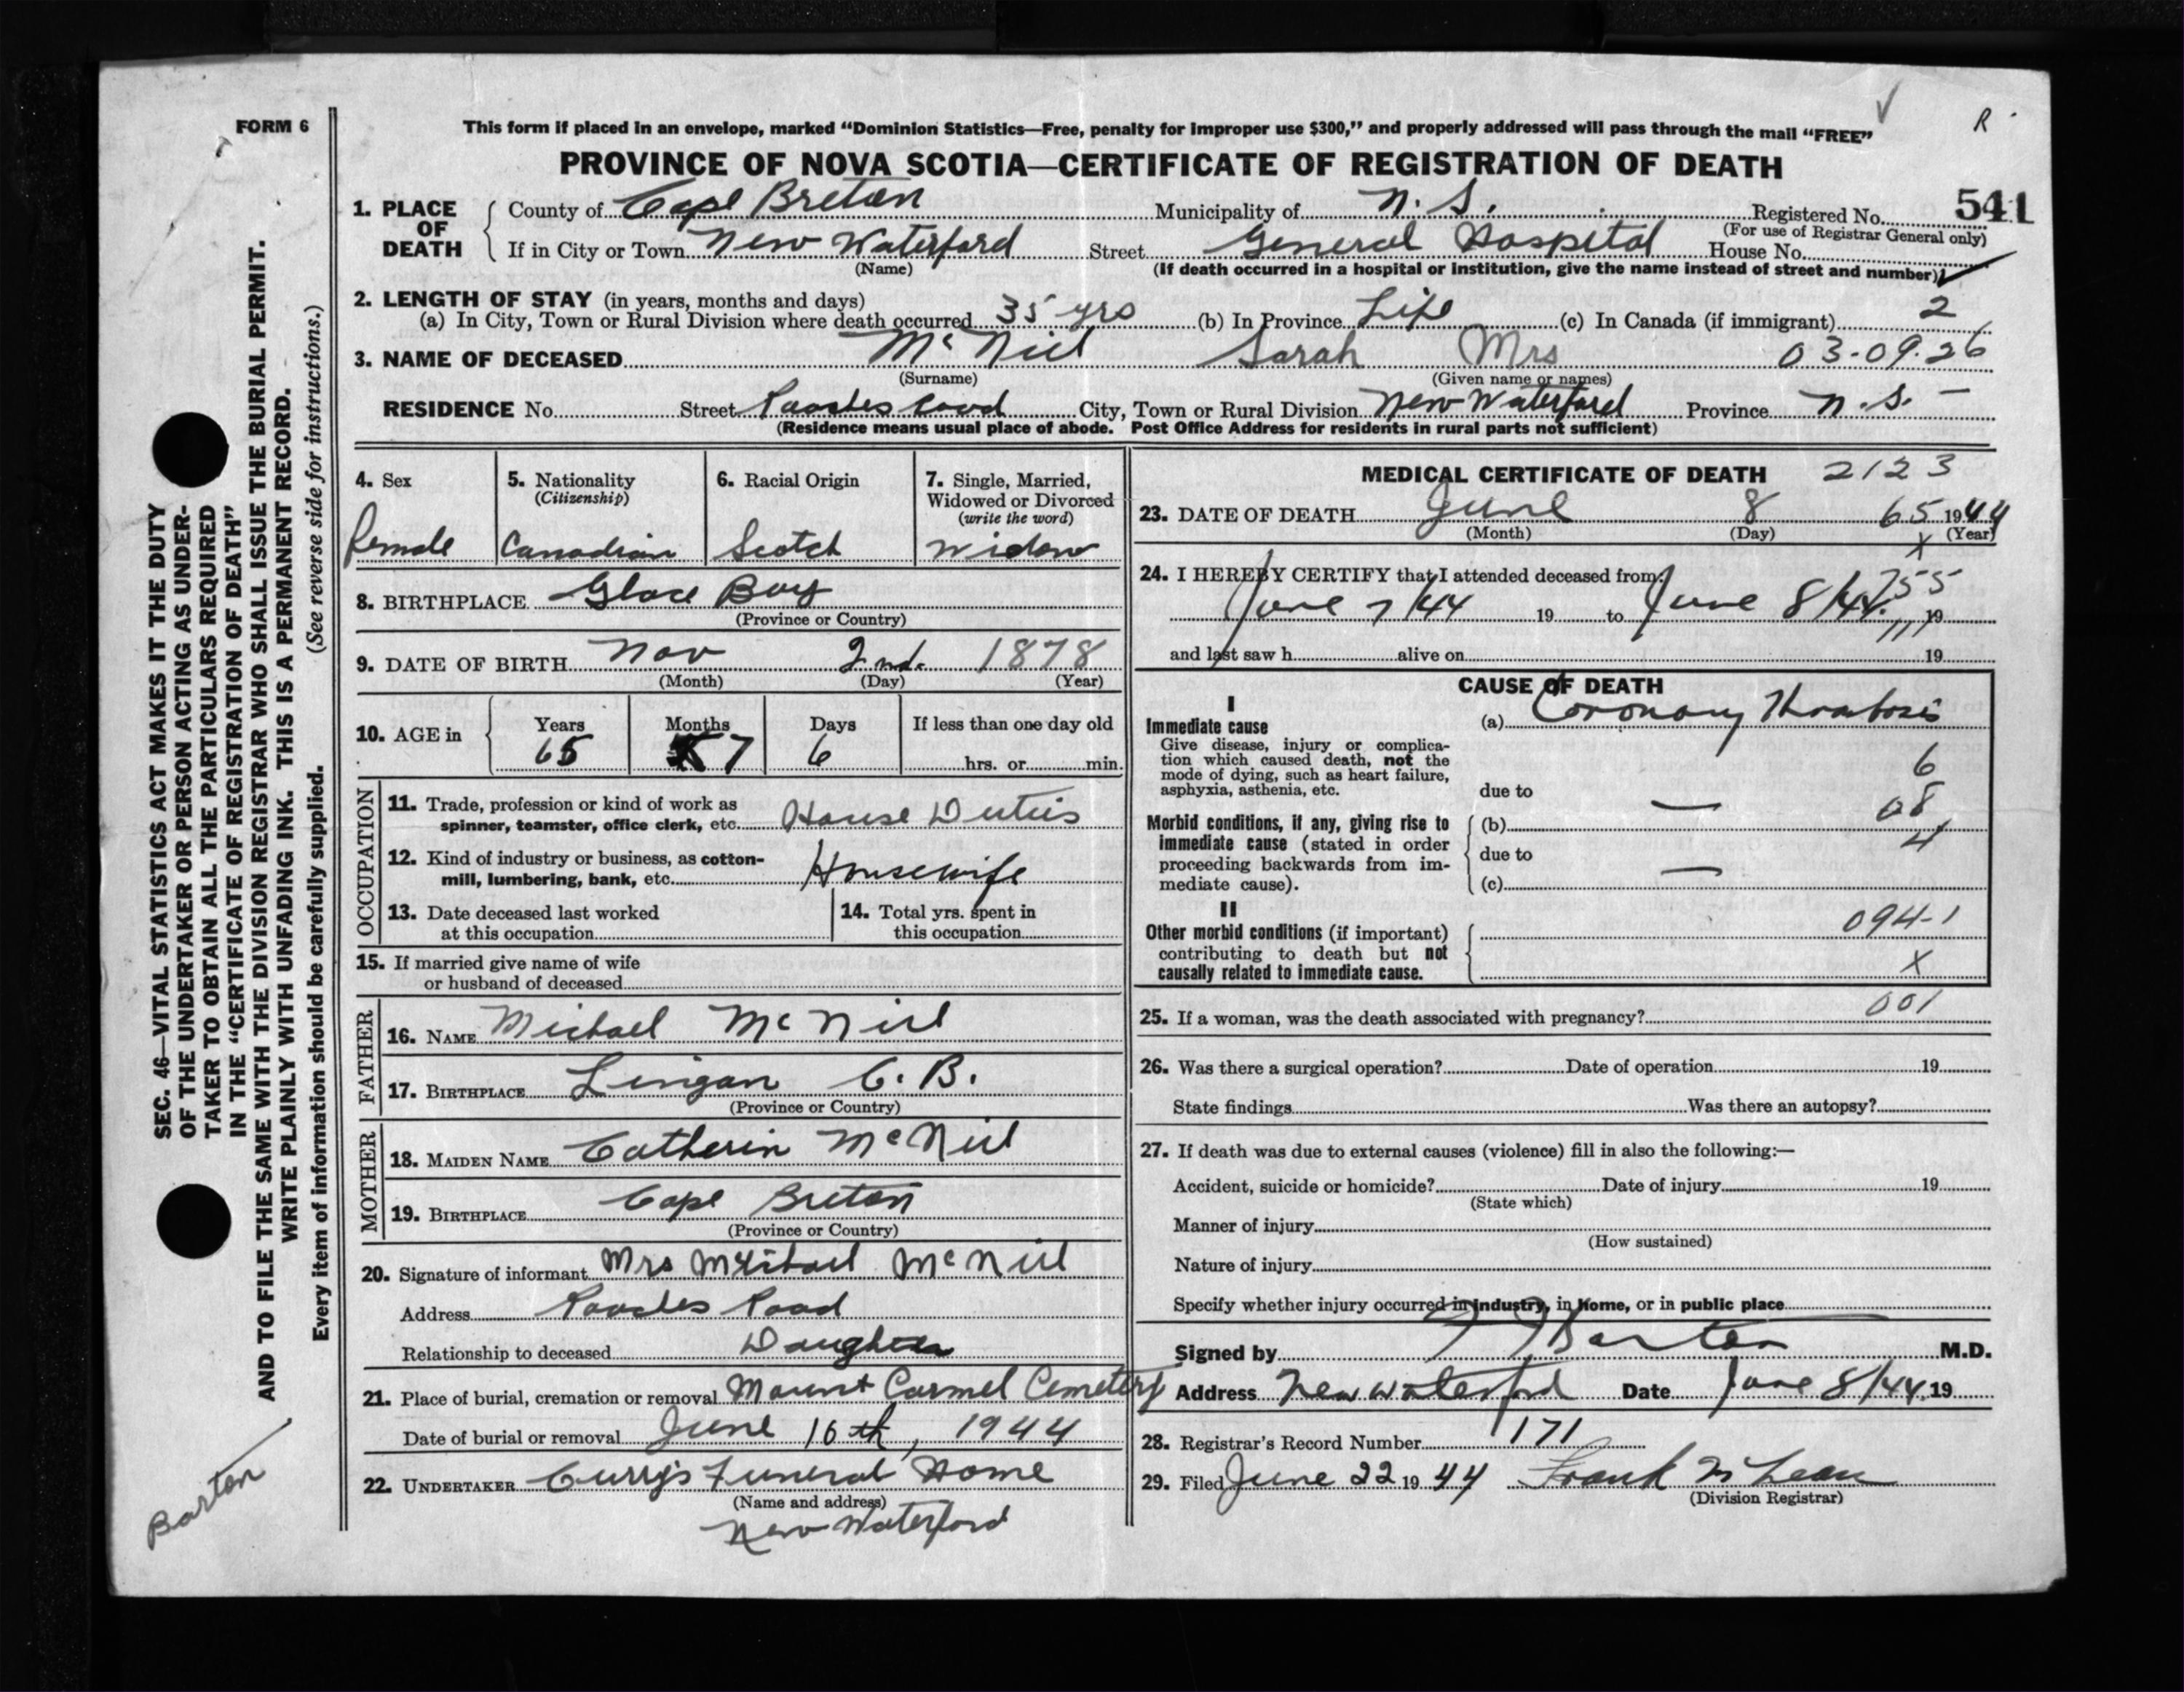 FORM 6
This form if placed in an envelope, marked “Dominion Statistics—Free, penalty for improper use $300,” and properly addressed will pass through the mail “FREE”
R
PROVINCE OF NOVA SCOTIA—CERTIFICATE OF REGISTRATION OF DEATH
1. PLACE OF DEATH County of Cape Breton Municipality of N. S. Registered No. 541
(For use of Registrar General only)
If in City or Town New Waterford Street General Hospital House No.
(Name) (If death occurred in a hospital or institution, give the name instead of street and number)
2. LENGTH OF STAY (in years, months and days)
(a) In City, Town or Rural Division where death occurred 35 yrs (b) In Province Life (c) In Canada (if immigrant) 2
3. NAME OF DECEASED McNiel Sarah Mrs 03-09-26
(Surname) (Given name or names)
RESIDENCE No. Street Road City, Town or Rural Division New Waterford Province N.S. —
(Residence means usual place of abode. Post Office Address for residents in rural parts not sufficient)
4. Sex 5. Nationality 6. Racial Origin 7. Single, Married,
(Citizenship) Widowed or Divorced
(write the word)
Female Canadian Scotch Widow
8. BIRTHPLACE Glace Bay
(Province or Country)
9. DATE OF BIRTH Nov 2nd. 1878
(Month) (Day) (Year)
10. AGE in Years Months Days If less than one day old
65 7 6 hrs. or min.
OCCUPATION
11. Trade, profession or kind of work as
spinner, teamster, office clerk, etc. House Duties
12. Kind of industry or business, as cotton-
mill, lumbering, bank, etc. Housewife
13. Date deceased last worked 14. Total yrs. spent in
at this occupation this occupation
15. If married give name of wife
or husband of deceased
FATHER
16. NAME Michael McNiel
17. BIRTHPLACE Lingan C. B.
(Province or Country)
MOTHER
18. MAIDEN NAME Catherin McNiel
19. BIRTHPLACE Cape Breton
(Province or Country)
20. Signature of informant Mrs Michael McNiel
Address Road
Relationship to deceased Daughter
21. Place of burial, cremation or removal Mount Carmel Cemetery
Date of burial or removal June 10th, 1944
22. UNDERTAKER Curry's Funeral Home
(Name and address)
New Waterford
MEDICAL CERTIFICATE OF DEATH 2123
23. DATE OF DEATH June 8 65 1944
(Month) (Day) (Year)
X
24. I HEREBY CERTIFY that I attended deceased from: 755
June 7/44 19 to June 8/44. 19
and last saw h alive on 19
CAUSE OF DEATH
I
Immediate cause (a) Coronary Thrombosis
Give disease, injury or complica-
tion which caused death, not the 6
mode of dying, such as heart failure,
asphyxia, asthenia, etc. due to — 08
Morbid conditions, if any, giving rise to (b)
immediate cause (stated in order 4
proceeding backwards from im- due to —
mediate cause). (c)
II
Other morbid conditions (if important) 094-1
contributing to death but not
causally related to immediate cause. X
25. If a woman, was the death associated with pregnancy? 001
26. Was there a surgical operation? Date of operation 19
State findings Was there an autopsy?
27. If death was due to external causes (violence) fill in also the following:—
Accident, suicide or homicide? Date of injury 19
(State which)
Manner of injury
(How sustained)
Nature of injury
Specify whether injury occurred in industry, in home, or in public place
Signed by Barton M.D.
Address New Waterford Date June 8/44. 19
28. Registrar's Record Number 171
29. Filed June 22 1944 Frank McLean
(Division Registrar)
SEC. 46—VITAL STATISTICS ACT MAKES IT THE DUTY
OF THE UNDERTAKER OR PERSON ACTING AS UNDER-
TAKER TO OBTAIN ALL THE PARTICULARS REQUIRED
IN THE “CERTIFICATE OF REGISTRATION OF DEATH”
AND TO FILE THE SAME WITH THE DIVISION REGISTRAR WHO SHALL ISSUE THE BURIAL PERMIT.
WRITE PLAINLY WITH UNFADING INK. THIS IS A PERMANENT RECORD.
Every item of information should be carefully supplied. (See reverse side for instructions.)
Barton